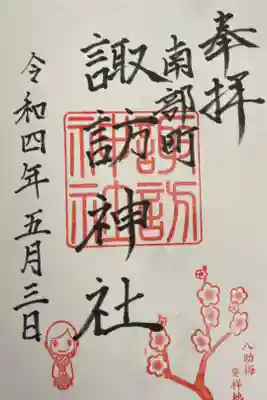 奉拝
南部町
諏訪神社
令和四年五月三日
諏訪
神社
八助梅
発祥地